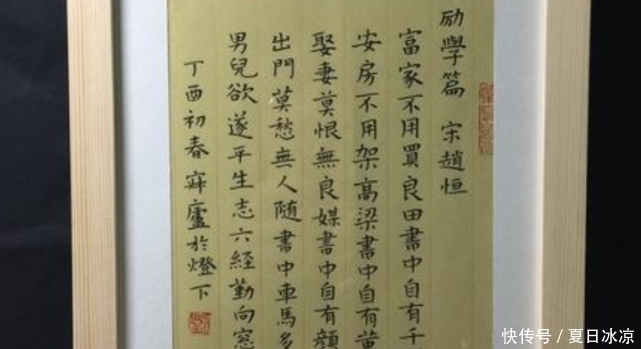 励學篇 宋趙恒
富家不用買良田書中自有千
安房不用架高梁書中自有黄
娶妻莫恨無良媒書中自有顔
出門莫愁無人隨書中車馬多
男兒欲遂平生志六経勤向窓
丁酉初春寐廬於燈下
快传号/夏日冰凉